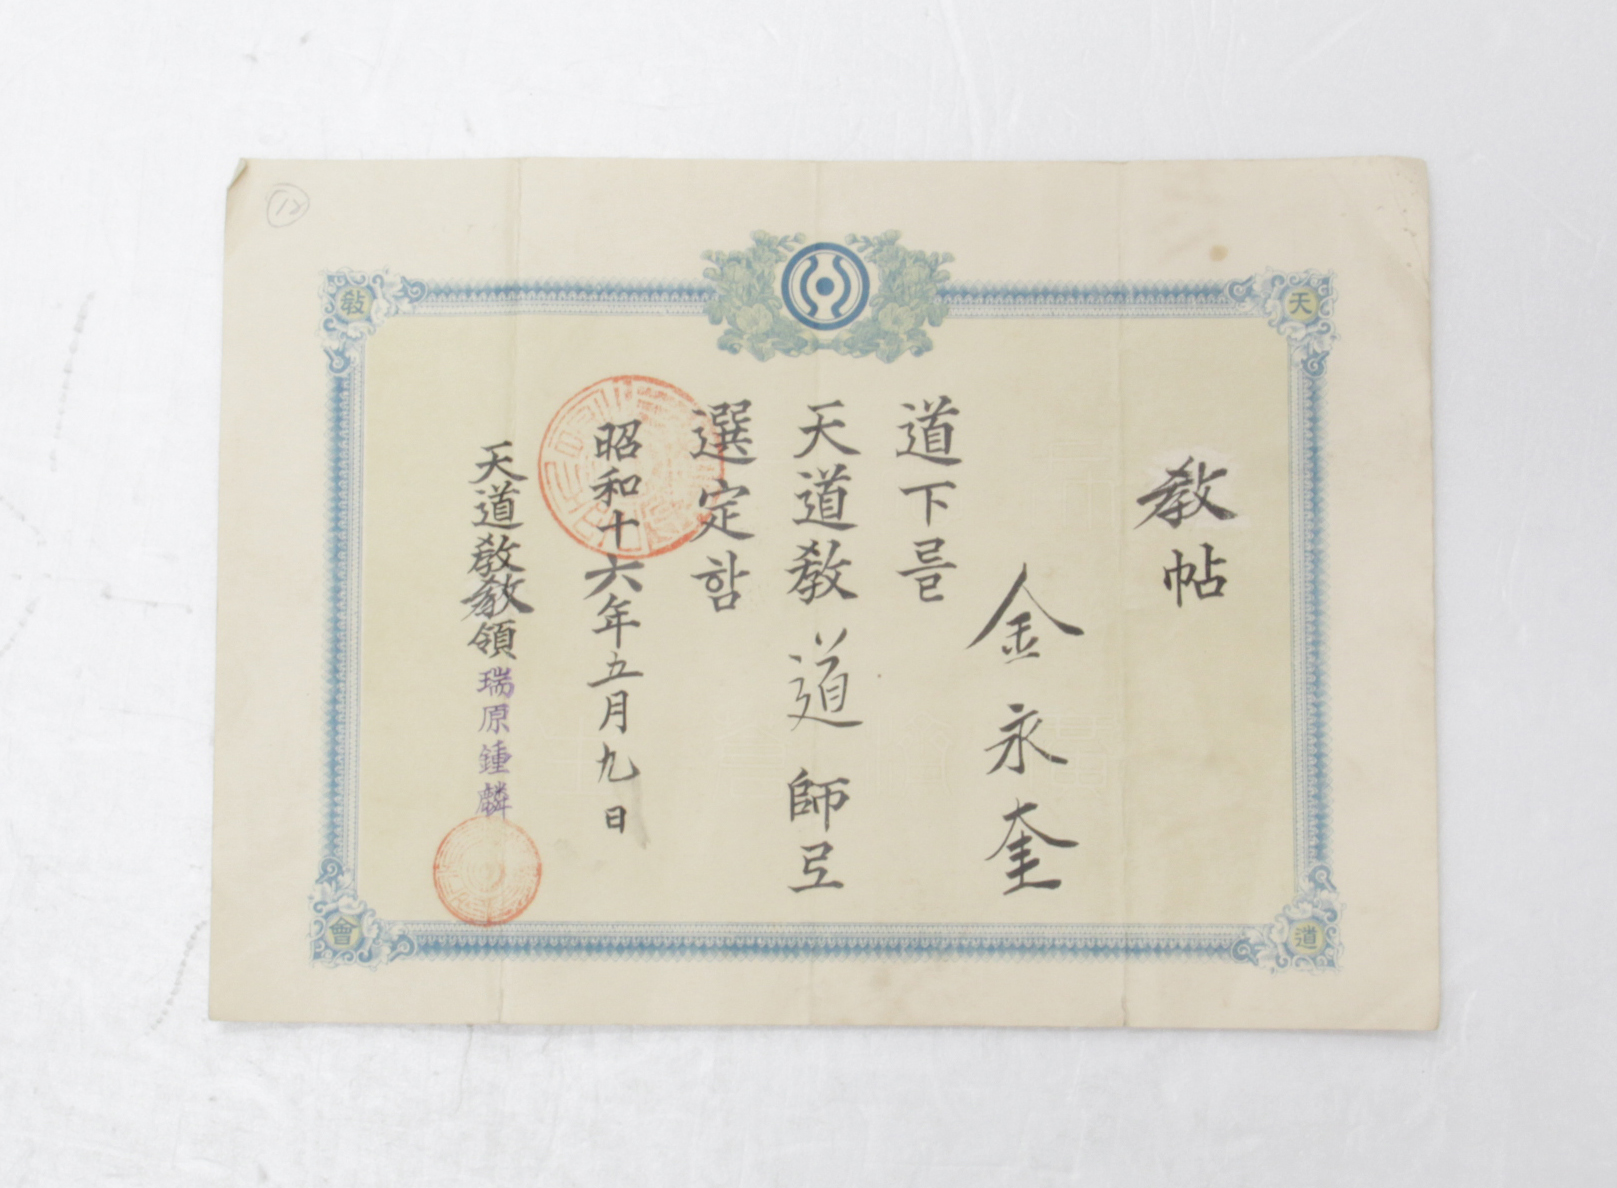 ⑫
天
道
教
會
教帖
金永奎
道下를
天道教道師로
選定함
昭和十六年五月九日
天道教教領瑞原鍾麟